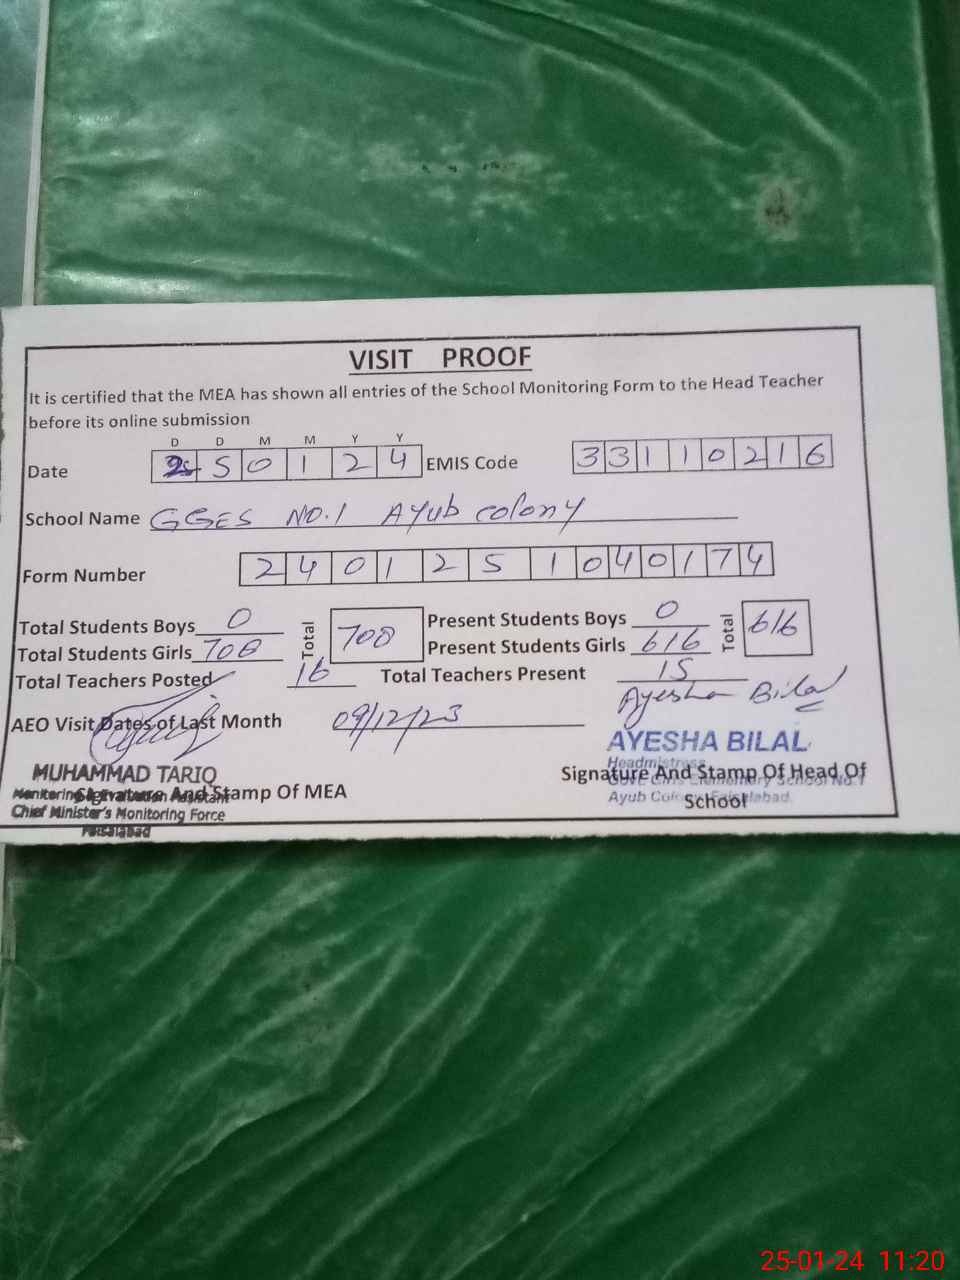 VISIT PROOF
It is certified that the MEA has shown all entries of the School Monitoring Form to the Head Teacher
before its online submission
D D M M Y Y
Date 2 5 0 1 2 4 EMIS Code 3 3 1 1 0 2 1 6
School Name GGES NO.1 Ayub colony
Form Number 2 4 0 1 2 5 1 0 4 0 1 7 4
Total Students Boys 0 Total 708 Present Students Boys 0 Total 616
Total Students Girls 708 Present Students Girls 616
Total Teachers Posted 16 Total Teachers Present 15
AEO Visit Dates of Last Month 09/12/23 Ayesha Bilal
AYESHA BILAL
MUHAMMAD TARIQ Headmistress
Signature And Stamp Of Head Of
Govt. Girls Elementary School No.1
Monitoring & Evaluation Assistant
Signature And Stamp Of MEA
Ayub Colony Faisalabad.
School
Chief Minister's Monitoring Force
Faisalabad
25-01-24 11:20